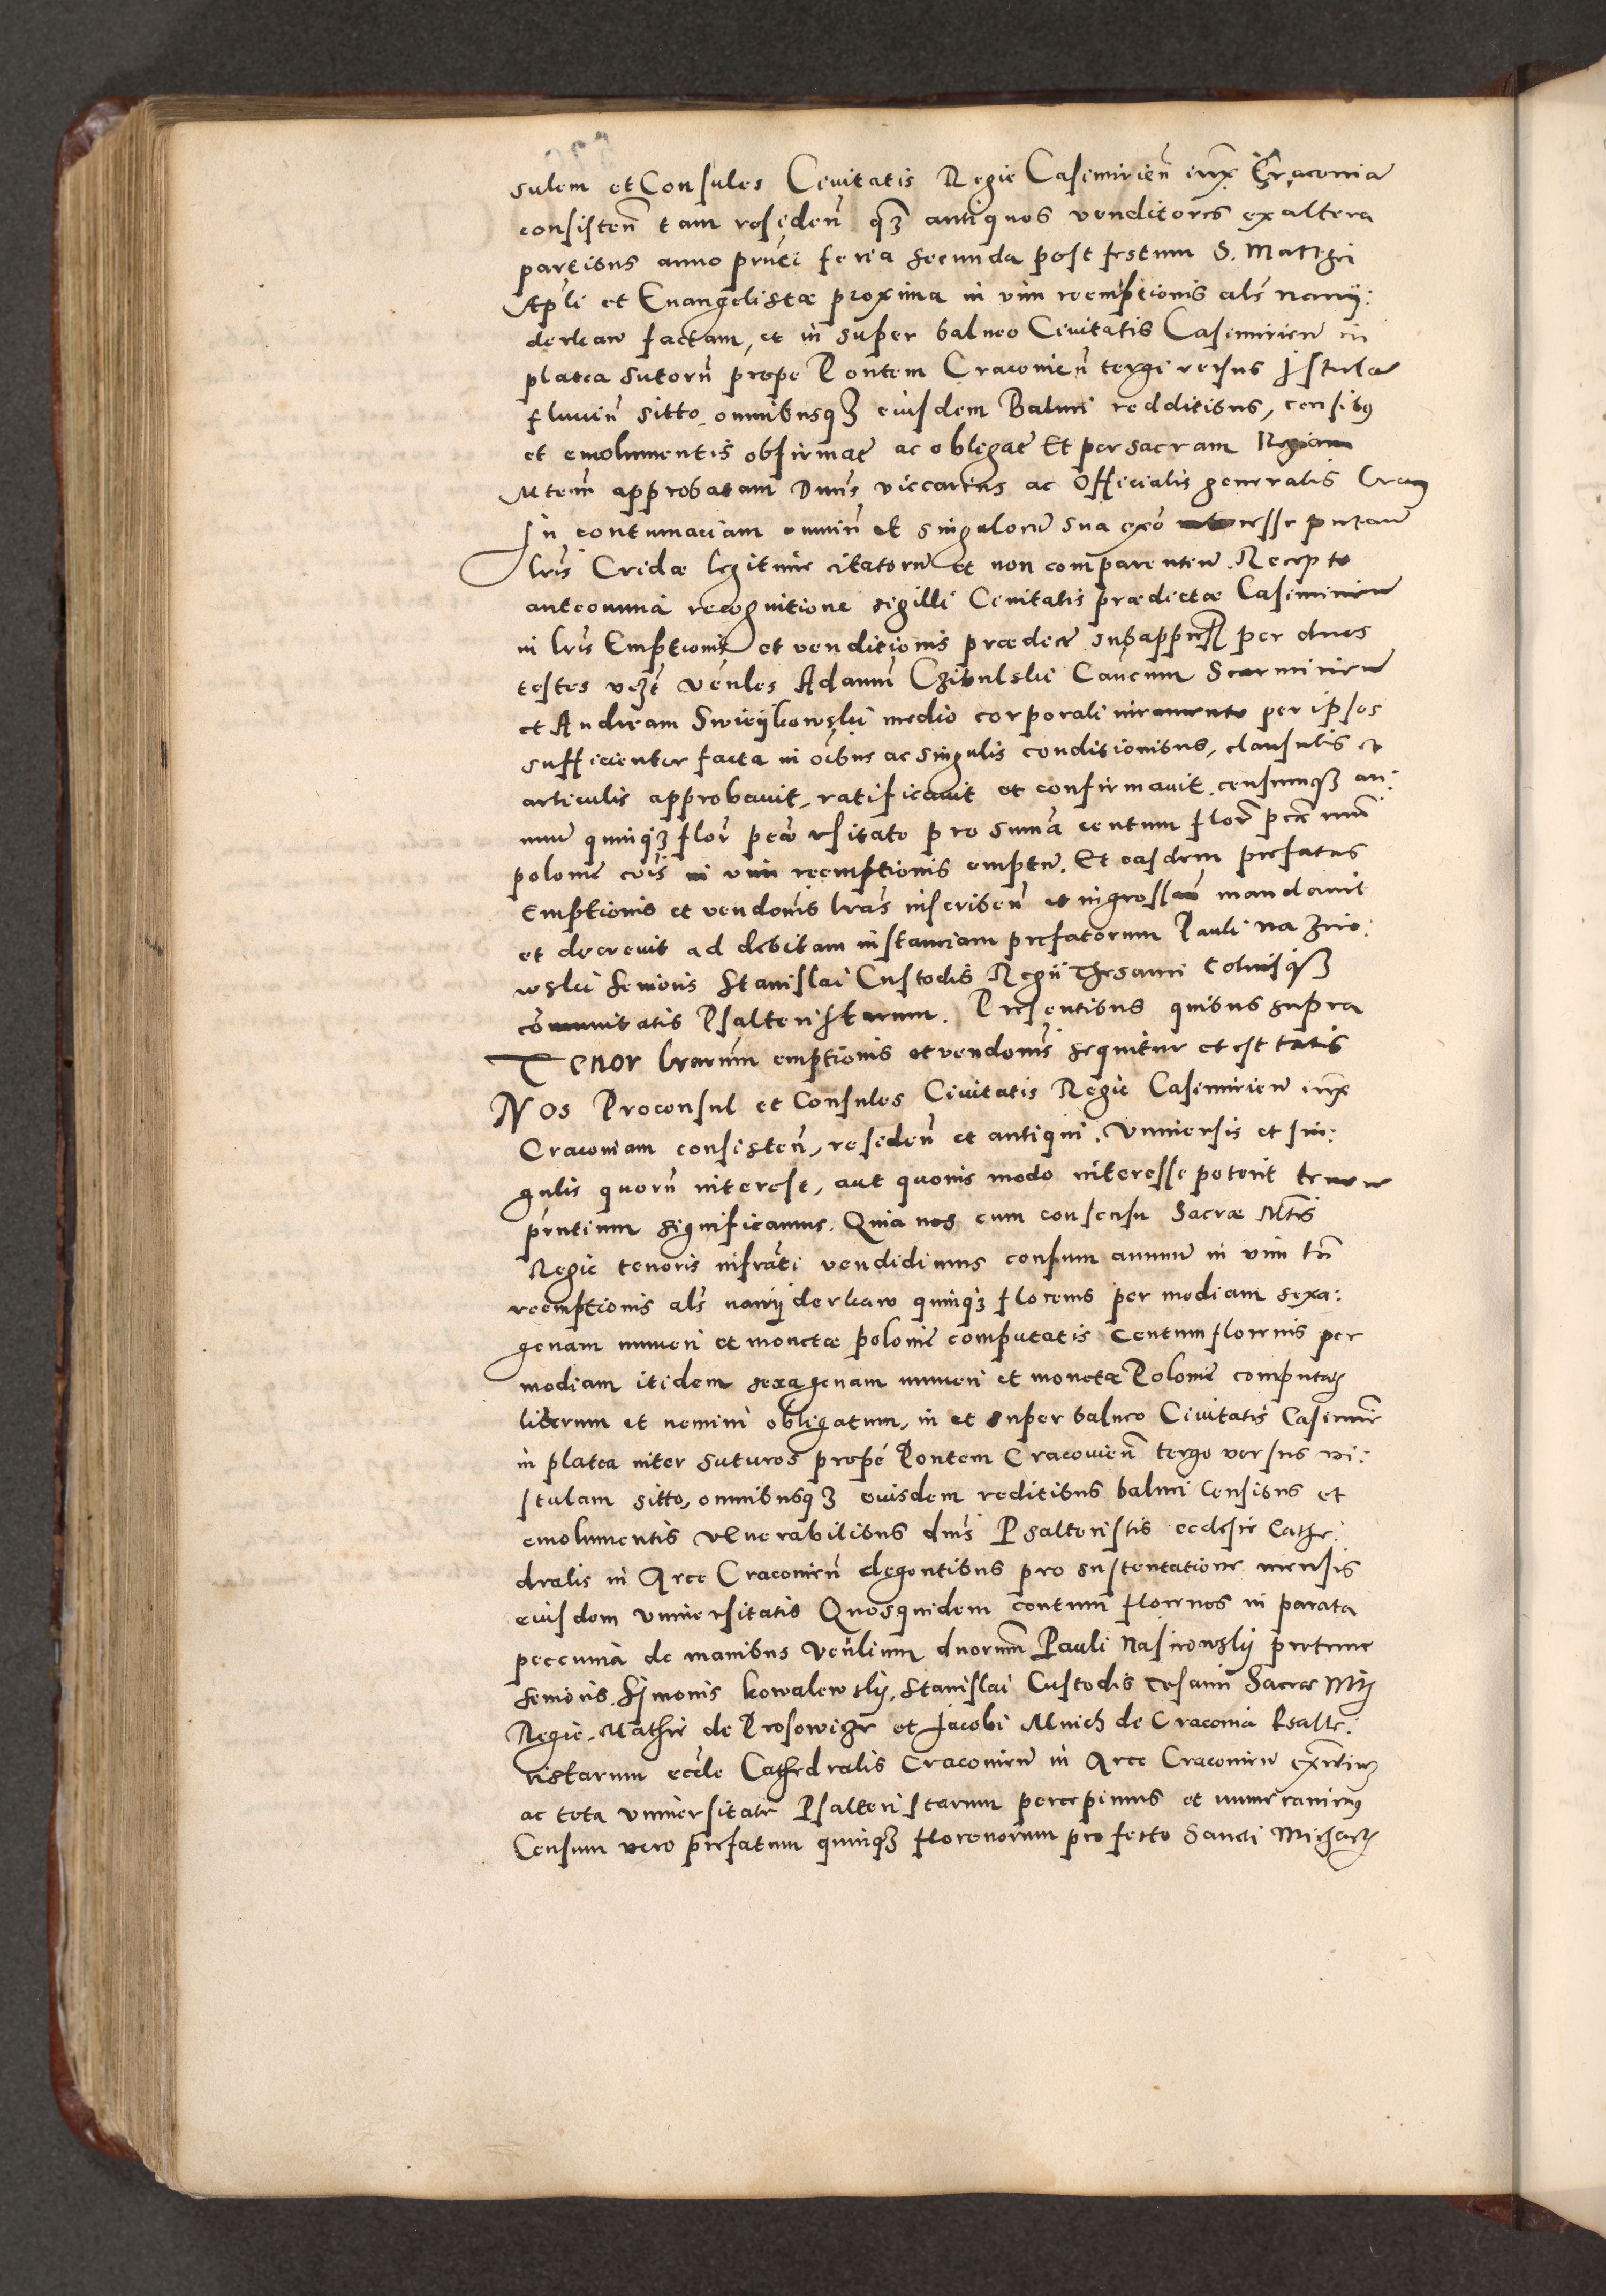 sulem et Consules Civitatis Regie Casimirien̄ iux̄ Cracovia
consisten̄ tam reseden̄ qȝ antiquos venditores ex altera
partibus anno prn̄ti feria secunda post festum S. Matthei
Apl̄i et Evangelistæ proxima in vim reemptionis als̄ na wij:
derkaw factam, et in super balneo Civitatis Casimirien̄ in
platea sutorū prope Pontem Cracovien̄ tergi versus Istula
fluviū sitto, omnibusqȝ eiusdem Balnei redditibus, censibꝯ
et emolumentis obfirmat̄ ac obligat̄ Et per sacram Regiam
Mtem̄ approbatam Dnūs viccarius ac Officialis generalis Crac̄
In contumaciam omniū et singulorū sua exō interesse putan̄
lrīs Cridæ legitime citatorū et non comparentiū. Recepto
anteomnia recognitione sigilli Civitatis prædictæ Casimirien̄
in lrīs Emptionis et venditionis prædict̄ subappen̄ per duos
testes vezt̄ Venles Adamū Czibulski Caucum Scarmirien̄
et Andream Swieijkowski medio corporali iuramento per ipsos
sufficienter facta in oībus ac singulis conditionibus, clausulis et
articulis approbavit, ratificavit et confirmavit. censumqȝ an:
nuū quinqȝ flor̄ pecū usitato pro suma centum flor̄ pcæ nūi
polonie cōis in vim reemptionis emptū. Et easdem prefatas
Emptionis et vendonīs lrās inseriben̄ et ingrossan̄ mandavit
et decrevit ad debitam instanciam prefatorum Pauli na Ziro:
wski Senioris Stanislai Custodis Regii Thesauri totiusqȝ
com̄unitatis Psalteristarum. Presentibus quibus supra
Tenor lrarum emptionis et vendonīs sequitur et est talis
Nos Proconsul et Consules Civitatis Regie Casimirien̄ iux̄
Cracoviam consisten̄, reseden̄ et antiqui. Universis et sin:
gulis quorū interest, aut quovis modo interesse poterit tenore
prn̄tium significamus. Quia nos cum consensu Sacræ Mtis̄
Regie tenoris infrāti vendidimus censum annuū in vim tn̄
reemptionis als̄ na wij derkaw quinqȝ florenis per mediam sexa:
genam numeri et monetæ polonie computatis Centum florenis per
mediam itidem sexagenam numeri et monetæ Polonie computatȝ
liberum et nemini obligatum, in et super balneo Civitatis Casimir̄
in platea inter suturos prope Pontem Cracovien̄ tergo versus vi:
stulam sitto, omnibusqȝ euisdem reditibus balnei Censibus et
emolumentis Venerabilibus dnīs Psalteristis ecclesie Cathe:
dralis in Arce Cracovien̄ degentibus pro sustentatione mensis
eiusdem universitatis Quosquidem centum florenos in parata
peccunia de manibus Venl̄ium dnorum Pauli Nasirowskij pretunc
senioris. Simonis Kowalewskij, Stanislai Custodis tesauri Sacræ Mtȝ
Regie. Mathie de Prosowicze et Jacobi Mnich de Cracovia Psalte:
ristarum eccl̄e Cathedralis Cracovien̄ in Arce Cracovien̄ existen̄
ac tota universitate Psalteristarum percepimus et numeravimꝯ
Censum vero prefatum quinqȝ florenorum pro festo Sancti Michaelȝ